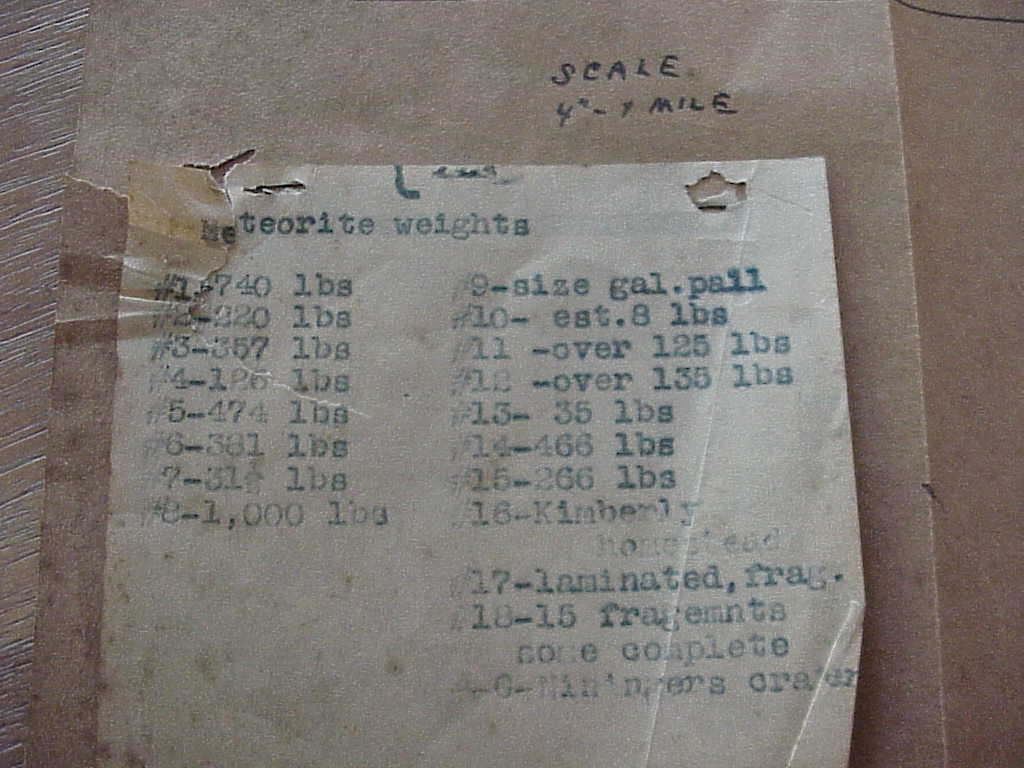 SCALE
4"- 1 MILE
Meteorite weights
#1-740 lbs
#2-220 lbs
#3-357 lbs
#4-126 lbs
#5-474 lbs
#6-381 lbs
#7-31½ lbs
#8-1,000 lbs
#9-size gal.pail
#10- est.8 lbs
#11 -over 125 lbs
#12 -over 135 lbs
#13- 35 lbs
#14-466 lbs
#15-266 lbs
#16-Kimberly
homestead
#17-laminated,frag.
#18-15 fragemnts
some complete
-0-Niningers crater